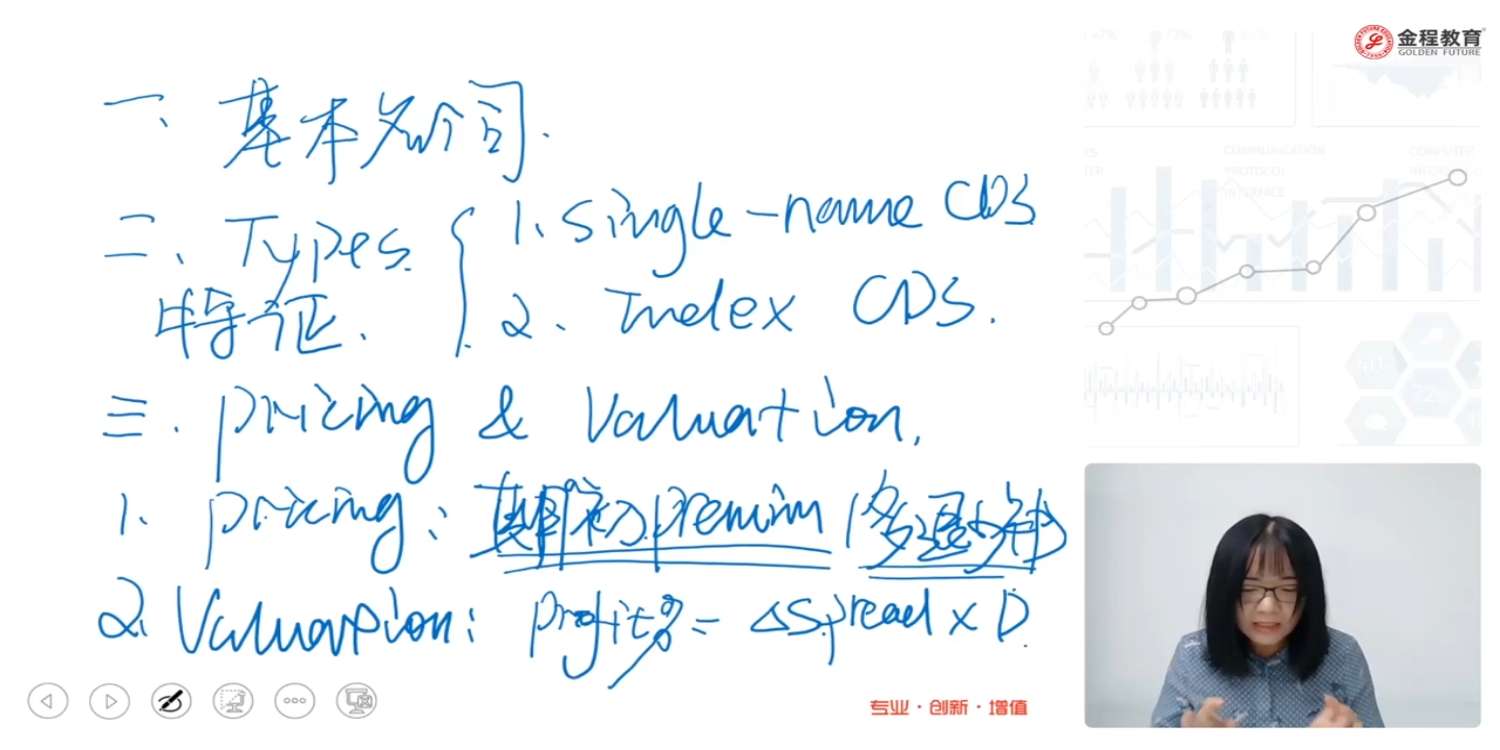 金程教育
GOLDEN FUTURE
一、基本名词.
二、Types
特征.
1. single-name CDS
2、Index CDS.
三. pricing & Valuation.
1. pricing: 期初 premium (多退少补)
2. Valuation: profit% = △Spread × D.
COMMUNICATION
PROTOCOL
专业·创新·增值